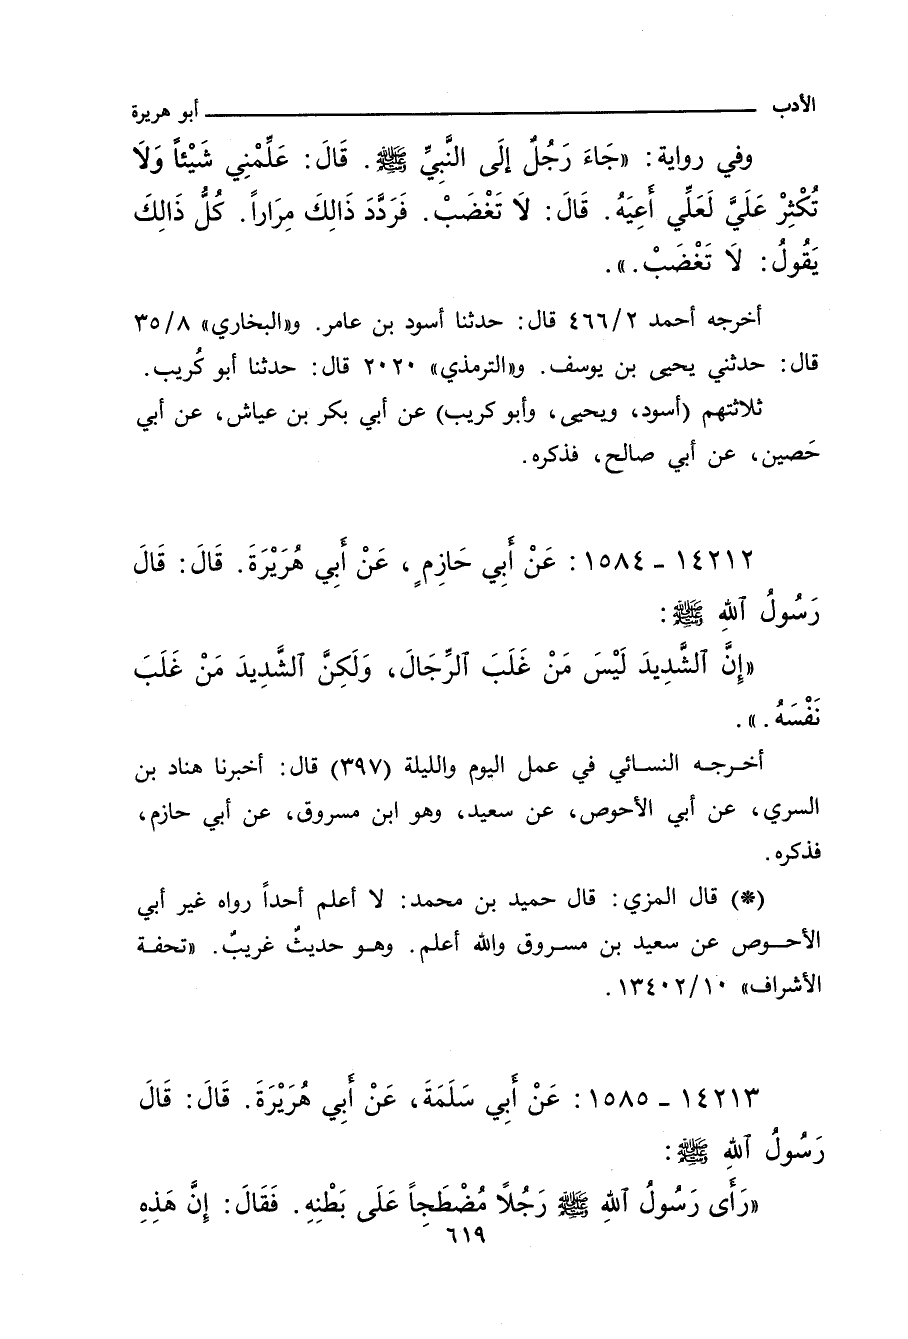 الأدب ــــــــــــــــــــ أبو هريرة
وفي رواية: «جَاءَ رَجُلٌ إلَى النَّبِيِّ ﷺ. قَالَ: عَلِّمْنِي شَيْئاً وَلَا
تُكْثِرْ عَلَيَّ لَعَلِّي أَعِيَهُ. قَالَ: لَا تَغْضَبْ. فَرَدَّدَ ذَالِكَ مِرَاراً. كُلُّ ذَالِكَ
يَقُولُ: لَا تَغْضَبْ.».
أخرجه أحمد ٤٦٦/٢ قال: حدثنا أسود بن عامر. و«البخاري» ٣٥/٨
قال: حدثني يحيى بن يوسف. و«الترمذي» ٢٠٢٠ قال: حدثنا أبو كُريب.
ثلاثتهم (أسود، ويحيى، وأبو كريب) عن أبي بكر بن عياش، عن أبي
حَصين، عن أبي صالح، فذكره.
١٤٢١٢ - ١٥٨٤: عَنْ أَبِي حَازِمٍ، عَنْ أَبِي هُرَيْرَةَ. قَالَ: قَالَ
رَسُولُ ٱللهِ ﷺ:
«إِنَّ ٱلشَّدِيدَ لَيْسَ مَنْ غَلَبَ ٱلرِّجَالَ، وَلَكِنَّ ٱلشَّدِيدَ مَنْ غَلَبَ
نَفْسَهُ.».
أخرجه النسائي في عمل اليوم والليلة (٣٩٧) قال: أخبرنا هناد بن
السري، عن أبي الأحوص، عن سعيد، وهو ابن مسروق، عن أبي حازم،
فذكره.
(*) قال المزي: قال حميد بن محمد: لا أعلم أحداً رواه غير أبي
الأحوص عن سعيد بن مسروق والله أعلم. وهو حديثٌ غريبٌ. «تحفة
الأشراف» ١٣٤٠٢/١٠.
١٤٢١٣ - ١٥٨٥: عَنْ أَبِي سَلَمَةَ، عَنْ أَبِي هُرَيْرَةَ. قَالَ: قَالَ
رَسُولُ ٱللهِ ﷺ:
«رَأَى رَسُولُ ٱللهِ ﷺ رَجُلًا مُضْطَجِعاً عَلَى بَطْنِهِ. فَقَالَ: إِنَّ هَذِهِ
٦١٩